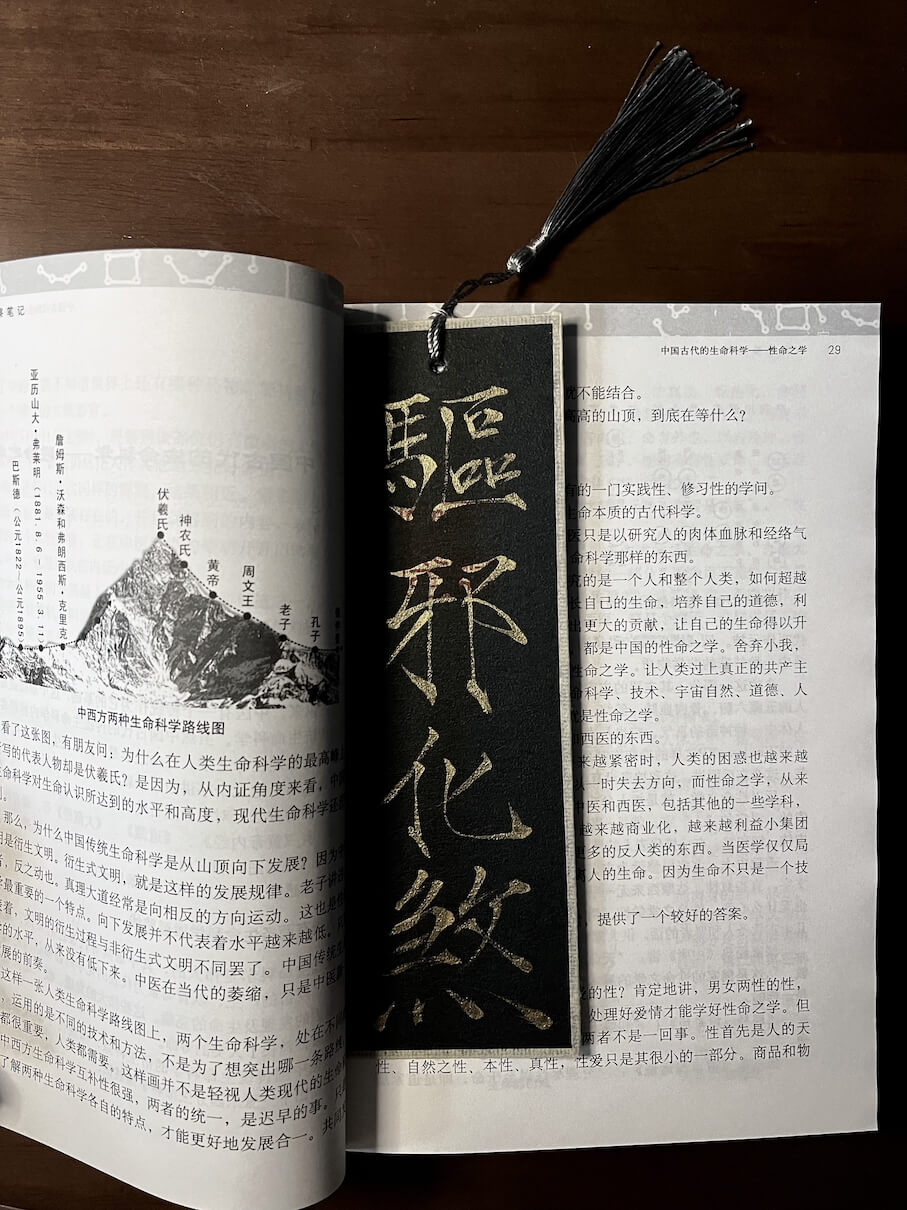 察笔记
亚历山大·弗莱明（1881.8.6－1955.3.11）
巴斯德（公元1822—公元1895）
詹姆斯·沃森和弗朗西斯·克里克
伏羲氏
神农氏
黄帝
周文王
老子
孔子
中西方两种生命科学路线图
看了这张图，有朋友问：为什么在人类生命科学的最高峰
所写的代表人物却是伏羲氏？是因为，从内证角度来看，中
生命科学对生命认识所达到的水平和高度，现代生命科学远
那么，为什么中国传统生命科学是从山顶向下发展？因为
明是衍生文明。衍生式文明，就是这样的发展规律。老子讲
者，反之动也。真理大道经常是向相反的方向运动。这也是
学最重要的一个特点。向下发展并不代表着水平越来越低。
着，文明的衍生过程与非衍生式文明不同罢了。中国传统
的水平，从来没有低下来。中医在当代的萎缩，只是中医
发展的前奏。
这样一张人类生命科学路线图上，两个生命科学，处在不同
，运用的是不同的技术和方法，不是为了想突出哪一条路线
都很重要，人类都需要。这样画并不是轻视人类现代的生命
中西方生命科学互补性很强，两者的统一，是迟早的事。
了解两种生命科学各自的特点，才能更好地发展合一。共同
驅邪化煞
中国古代的生命科学——性命之学 29
不能结合。
高的山顶，到底在等什么？
的一门实践性、修习性的学问。
命本质的古代科学。
医只是以研究人的肉体血脉和经络气
命科学那样的东西。
究的是一个人和整个人类，如何超越
长自己的生命，培养自己的道德，利
出更大的贡献，让自己的生命得以升
都是中国的性命之学。舍弃小我，
性命之学。让人类过上真正的共产主
命科学、技术、宇宙自然、道德、人
是性命之学。
西医的东西。
来越紧密时，人类的困惑也越来越
一时失去方向，而性命之学，从来
中医和西医，包括其他的一些学科，
越来越商业化，越来越利益小集团
更多的反人类的东西。当医学仅仅局
人的生命。因为生命不只是一个技
，提供了一个较好的答案。
的性？肯定地讲，男女两性的性，
处理好爱情才能学好性命之学。但
两者不是一回事。性首先是人的天
性、自然之性、本性、真性，性爱只是其很小的一部分。商品和物